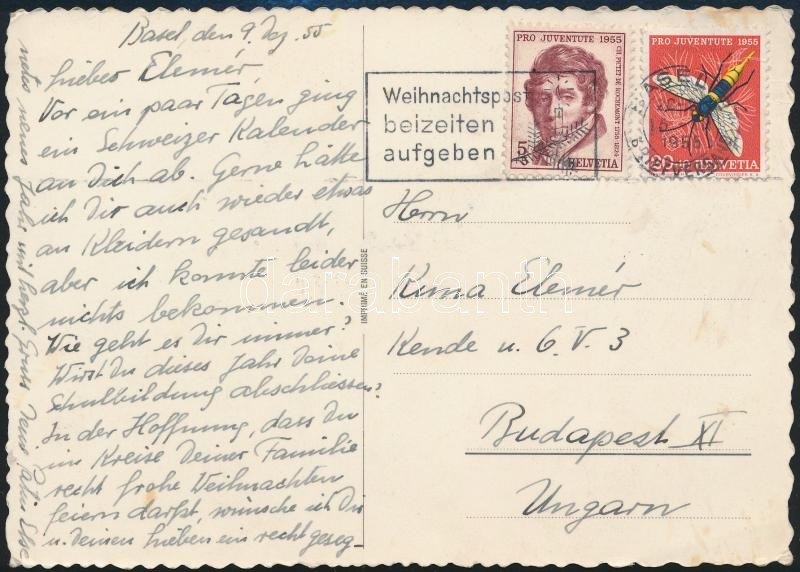 Basel, den 9. Dez. 55
Lieber Elemér,
Vor ein paar Tagen ging
ein Schweizer Kalender
an Dich ab. Gerne hätte
ich Dir auch wieder etwas
an Kleidern gesandt,
aber ich konnte leider
nichts bekommen.
Wie geht es Dir immer?
Wirst Du dieses Jahr Deine
Schulbildung abschliessen?
In der Hoffnung, dass Du
im Kreise Deiner Familie
recht frohe Weihnachten
feiern darfst, wünsche ich Dir
u. Deinen Lieben ein recht geseg-
netes neues Jahr und herzl. Gruss Deine Patin Else
IMPRIMÉ EN SUISSE
Weihnachtspost
beizeiten
aufgeben
PRO JUVENTUTE 1955
CH. PICTET DE ROCHEMONT 1755-1824
5
HELVETIA
PRO JUVENTUTE 1955
HELVETIA
COURVOISIER S.A.
BASEL
1955
BRIEFVERSAND
Herrn
Kuna Elemér
Kende u. 6. V. 3
Budapest XI
Ungarn
darabanth